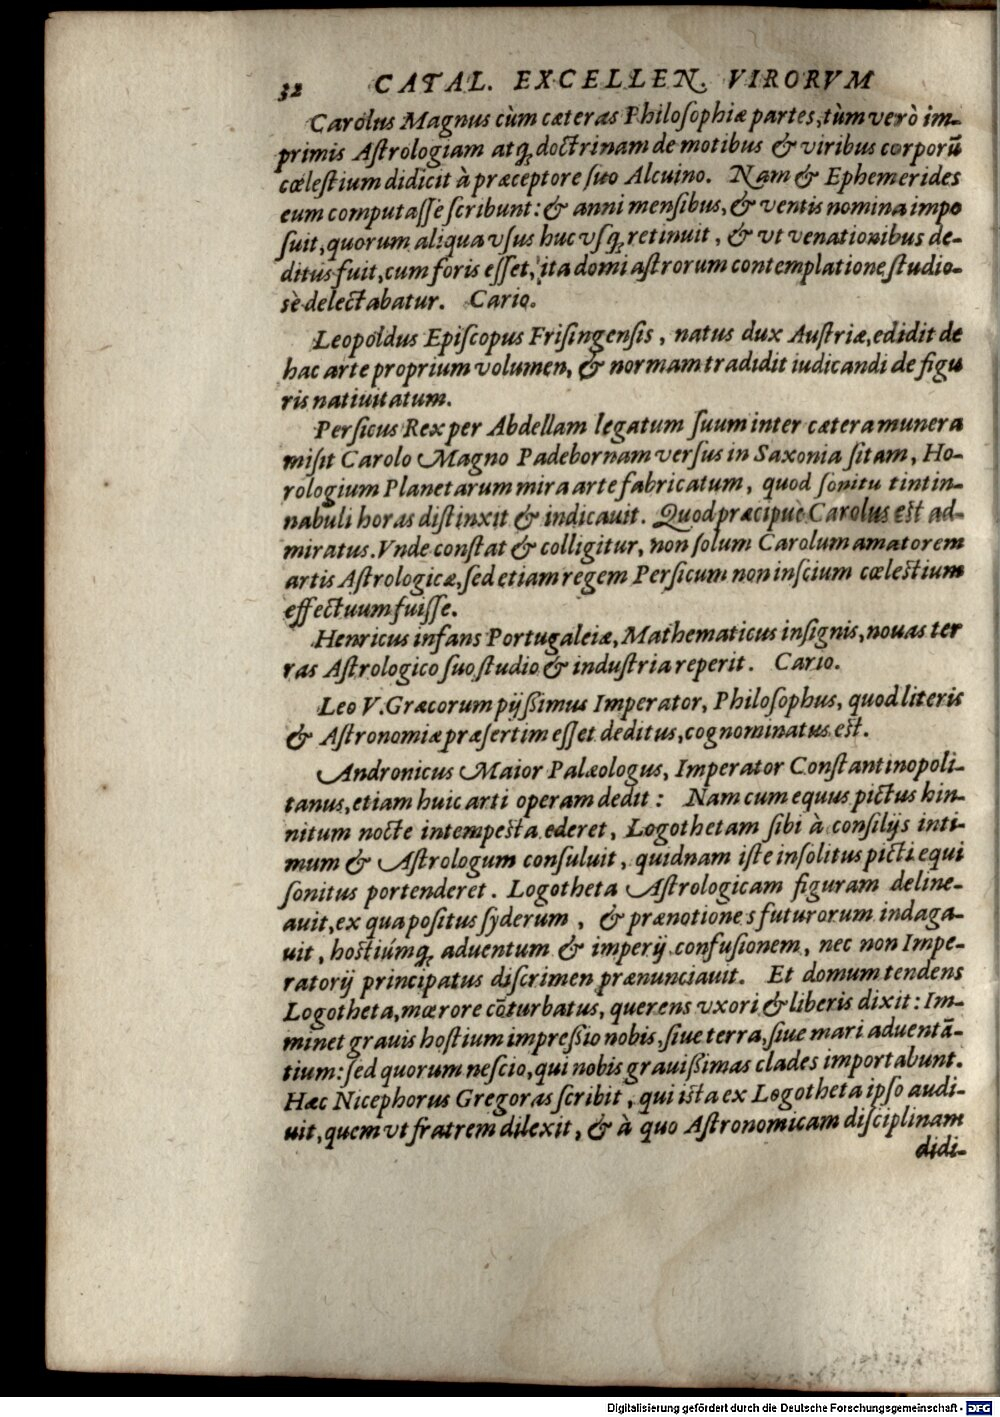 32 CATAL. EXCELLEN. VIRORVM
Carolus Magnus cùm cæteras Philoſophiæ partes, tùm verò im-
primis Aſtrologiam atq́; doctrinam de motibus & viribus corporū
cœleſtium didicit à præceptore ſuo Alcuino. Nam & Ephemerides
eum computaſſe ſcribunt: & anni menſibus, & ventis nomina impo
ſuit, quorum aliqua vſus huc vſq́; retinuit, & vt venationibus de-
ditus fuit, cum foris eſſet, ita domi aſtrorum contemplatione ſtudio-
sè delectabatur. Cario.
Leopoldus Epiſcopus Friſingenſis, natus dux Auſtriæ, edidit de
hac arte proprium volumen, & normam tradidit iudicandi de figu
ris natiuitatum.
Perſicus Rex per Abdellam legatum ſuum inter cætera munera
miſit Carolo Magno Padebornam verſus in Saxonia ſitam, Ho-
rologium Planetarum mira arte fabricatum, quod ſonitu tintin-
nabuli horas diſtinxit & indicauit. Quod præcipuè Carolus eſt ad-
miratus. Vnde conſtat & colligitur, non ſolum Carolum amatorem
artis Aſtrologicæ, ſed etiam regem Perſicum non inſcium cœleſtium
effectuum fuiſſe.
Henricus infans Portugaleiæ, Mathematicus inſignis, nouas ter
ras Aſtrologico ſuo ſtudio & induſtria reperit. Cario.
Leo V. Græcorum pijßimus Imperator, Philoſophus, quod literis
& Aſtronomiæ præſertim eſſet deditus, cognominatus eſt.
Andronicus Maior Palæologus, Imperator Conſtantinopoli-
tanus, etiam huic arti operam dedit: Nam cum equus pictus hin-
nitum nocte intempeſta ederet, Logothetam ſibi à conſilijs inti-
mum & Aſtrologum conſuluit, quidnam iſte inſolitus picti equi
ſonitus portenderet. Logotheta Aſtrologicam figuram deline-
auit, ex qua poſitus ſyderum, & prænotiones futurorum indaga-
uit, hoſtiúmq́; aduentum & imperij confuſionem, nec non Impe-
ratorij principatus diſcrimen prænunciauit. Et domum tendens
Logotheta, mœrore cōturbatus, querens vxori & liberis dixit: Im-
minet grauis hoſtium impreßio nobis, ſiue terra, ſiue mari aduentā-
tium: ſed quorum neſcio, qui nobis grauißimas clades importabunt.
Hæc Nicephorus Gregoras ſcribit, qui iſta ex Logotheta ipſo audi-
uit, quem vt fratrem dilexit, & à quo Aſtronomicam diſciplinam
didi-
Digitalisierung gefördert durch die Deutsche Forschungsgemeinschaft - DFG